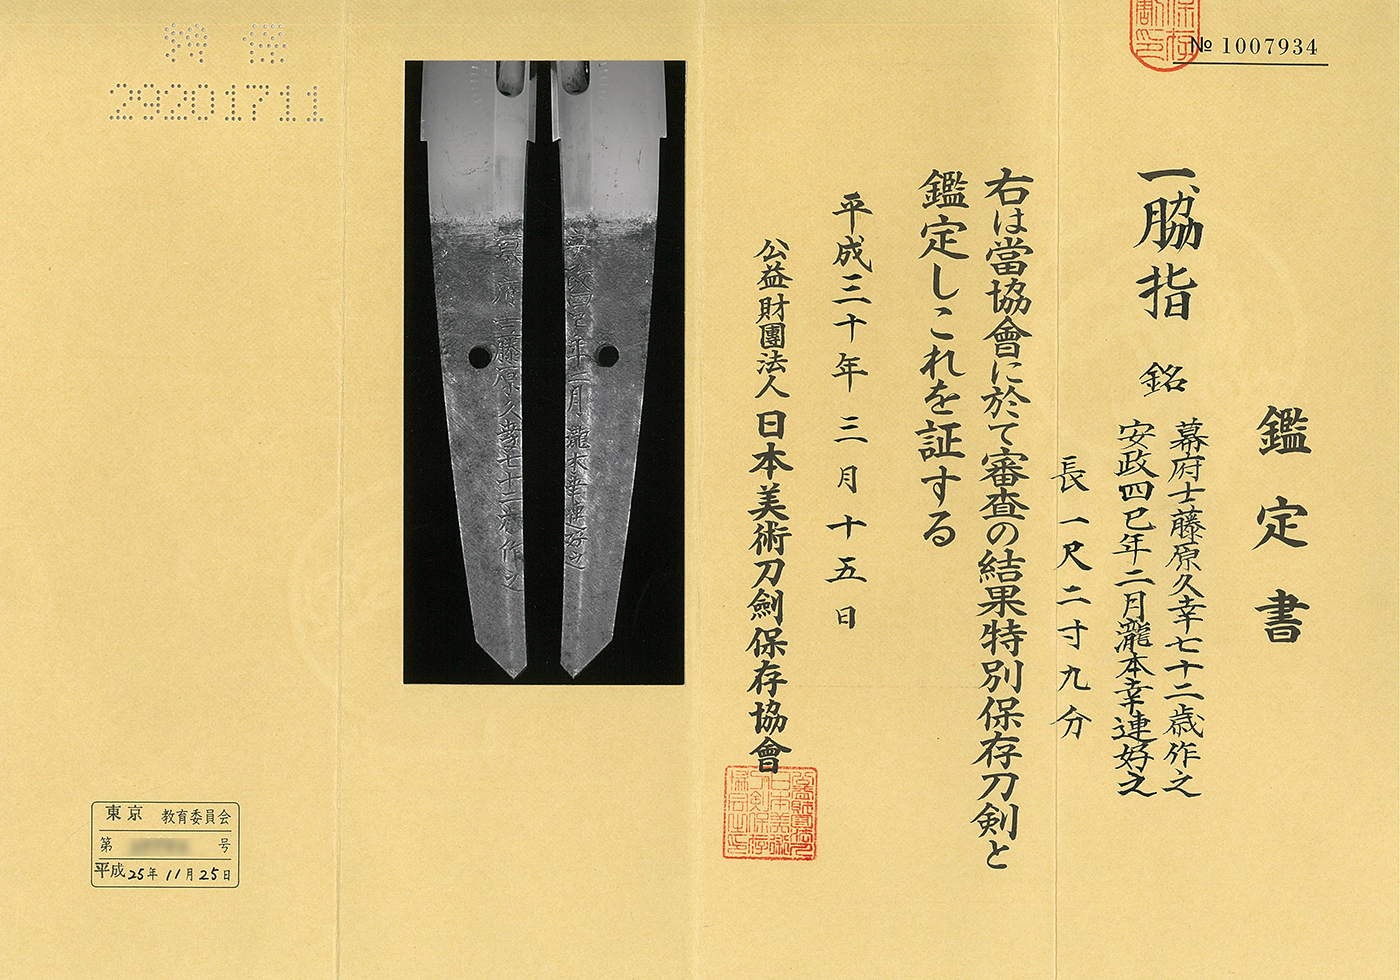 № 1007934
鑑定書
一、脇指 銘
幕府士藤原久幸七十二歳作之
安政四巳年二月瀧本幸連好之
長一尺二寸九分
右は當協會に於て審査の結果特別保存刀剣と
鑑定しこれを証する
平成三十年三月十五日
公益財團法人日本美術刀劍保存協會
幕府士藤原久幸七十二歳作之
安政四巳年二月瀧本幸連好之
特保
29201711
東京 教育委員会
第 号
平成25年11月25日